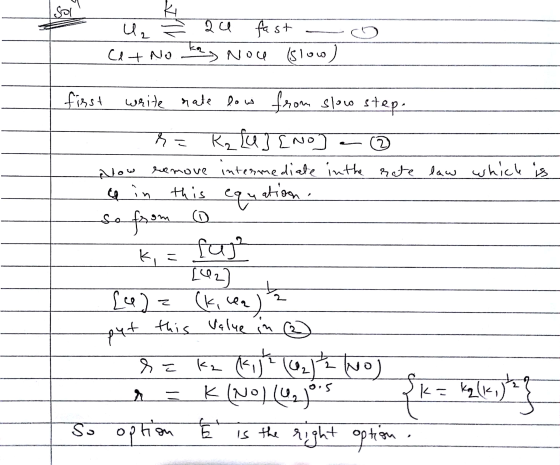 Sol
K1
Cl2 ⇌ 2Cl fast — ①
Cl + NO —k2→ NOCl (slow)
first write rate law from slow step.
r = K2 [Cl] [NO] — ②
Now remove intermediate in the rate law which is
Cl in this equation.
So from ①
K1 = [Cl]² / [Cl2]
[Cl] = (K1 Cl2)^1/2
put this value in ②
r = K2 (K1)^1/2 (Cl2)^1/2 (NO)
r = K (NO) (Cl2)^0.5 {K = K2(K1)^1/2}
So option 'E' is the right option.